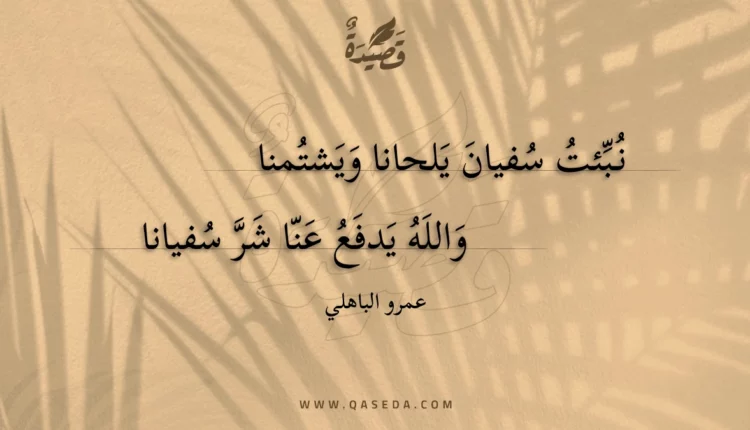 قَصِيْدَةٌ
نُبِّئتُ سُفيانَ يَلحانا وَيَشتُمنا
وَاللَهُ يَدفَعُ عَنّا شَرَّ سُفيانا
عمرو الباهلي
WWW.QASEDA.COM